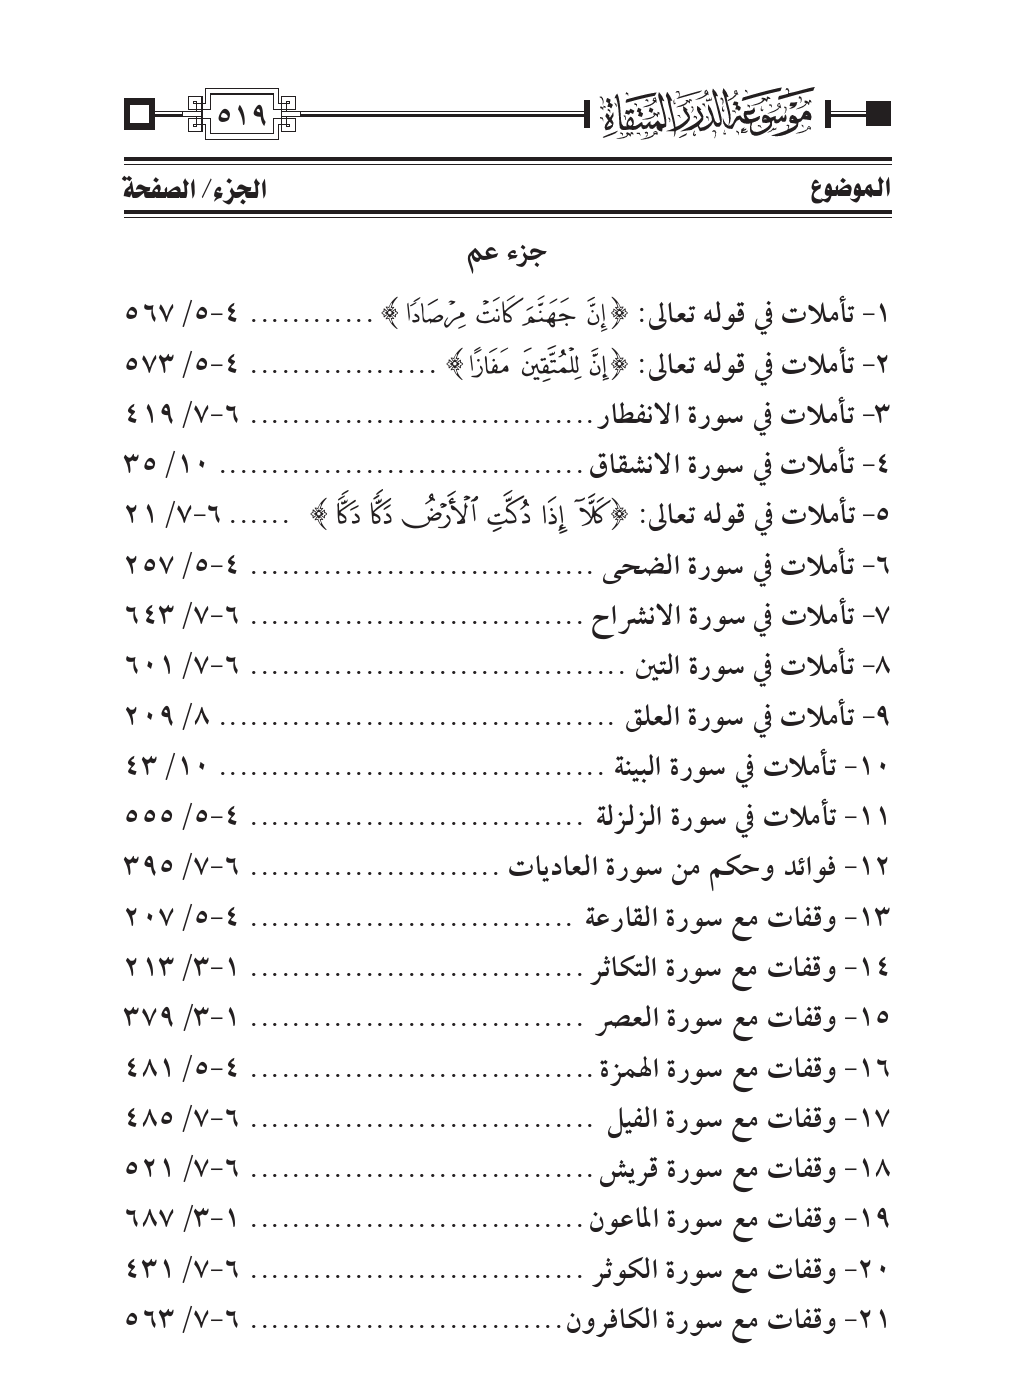 موسوعة الدرر المنتقاة ٥١٩
الموضوع الجزء/ الصفحة
جزء عم
١- تأملات في قوله تعالى: ﴿إِنَّ جَهَنَّمَ كَانَتْ مِرْصَادًا﴾ ............ ٤-٥/ ٥٦٧
٢- تأملات في قوله تعالى: ﴿إِنَّ لِلْمُتَّقِينَ مَفَازًا﴾ .................. ٤-٥/ ٥٧٣
٣- تأملات في سورة الانفطار ................................. ٦-٧/ ٤١٩
٤- تأملات في سورة الانشقاق ................................... ١٠/ ٣٥
٥- تأملات في قوله تعالى: ﴿كَلَّآ إِذَا دُكَّتِ ٱلْأَرْضُ دَكًّا دَكًّا﴾ ...... ٦-٧/ ٢١
٦- تأملات في سورة الضحى ................................. ٤-٥/ ٢٥٧
٧- تأملات في سورة الانشراح ................................ ٦-٧/ ٦٤٣
٨- تأملات في سورة التين .................................... ٦-٧/ ٦٠١
٩- تأملات في سورة العلق ...................................... ٨/ ٢٠٩
١٠- تأملات في سورة البينة ..................................... ١٠/ ٤٣
١١- تأملات في سورة الزلزلة ................................ ٤-٥/ ٥٥٥
١٢- فوائد وحكم من سورة العاديات ........................ ٦-٧/ ٣٩٥
١٣- وقفات مع سورة القارعة ............................... ٤-٥/ ٢٠٧
١٤- وقفات مع سورة التكاثر ................................ ١-٣/ ٢١٣
١٥- وقفات مع سورة العصر ................................ ١-٣/ ٣٧٩
١٦- وقفات مع سورة الهمزة ................................. ٤-٥/ ٤٨١
١٧- وقفات مع سورة الفيل ................................. ٦-٧/ ٤٨٥
١٨- وقفات مع سورة قريش ................................. ٦-٧/ ٥٢١
١٩- وقفات مع سورة الماعون ................................ ١-٣/ ٦٨٧
٢٠- وقفات مع سورة الكوثر ................................ ٦-٧/ ٤٣١
٢١- وقفات مع سورة الكافرون .............................. ٦-٧/ ٥٦٣